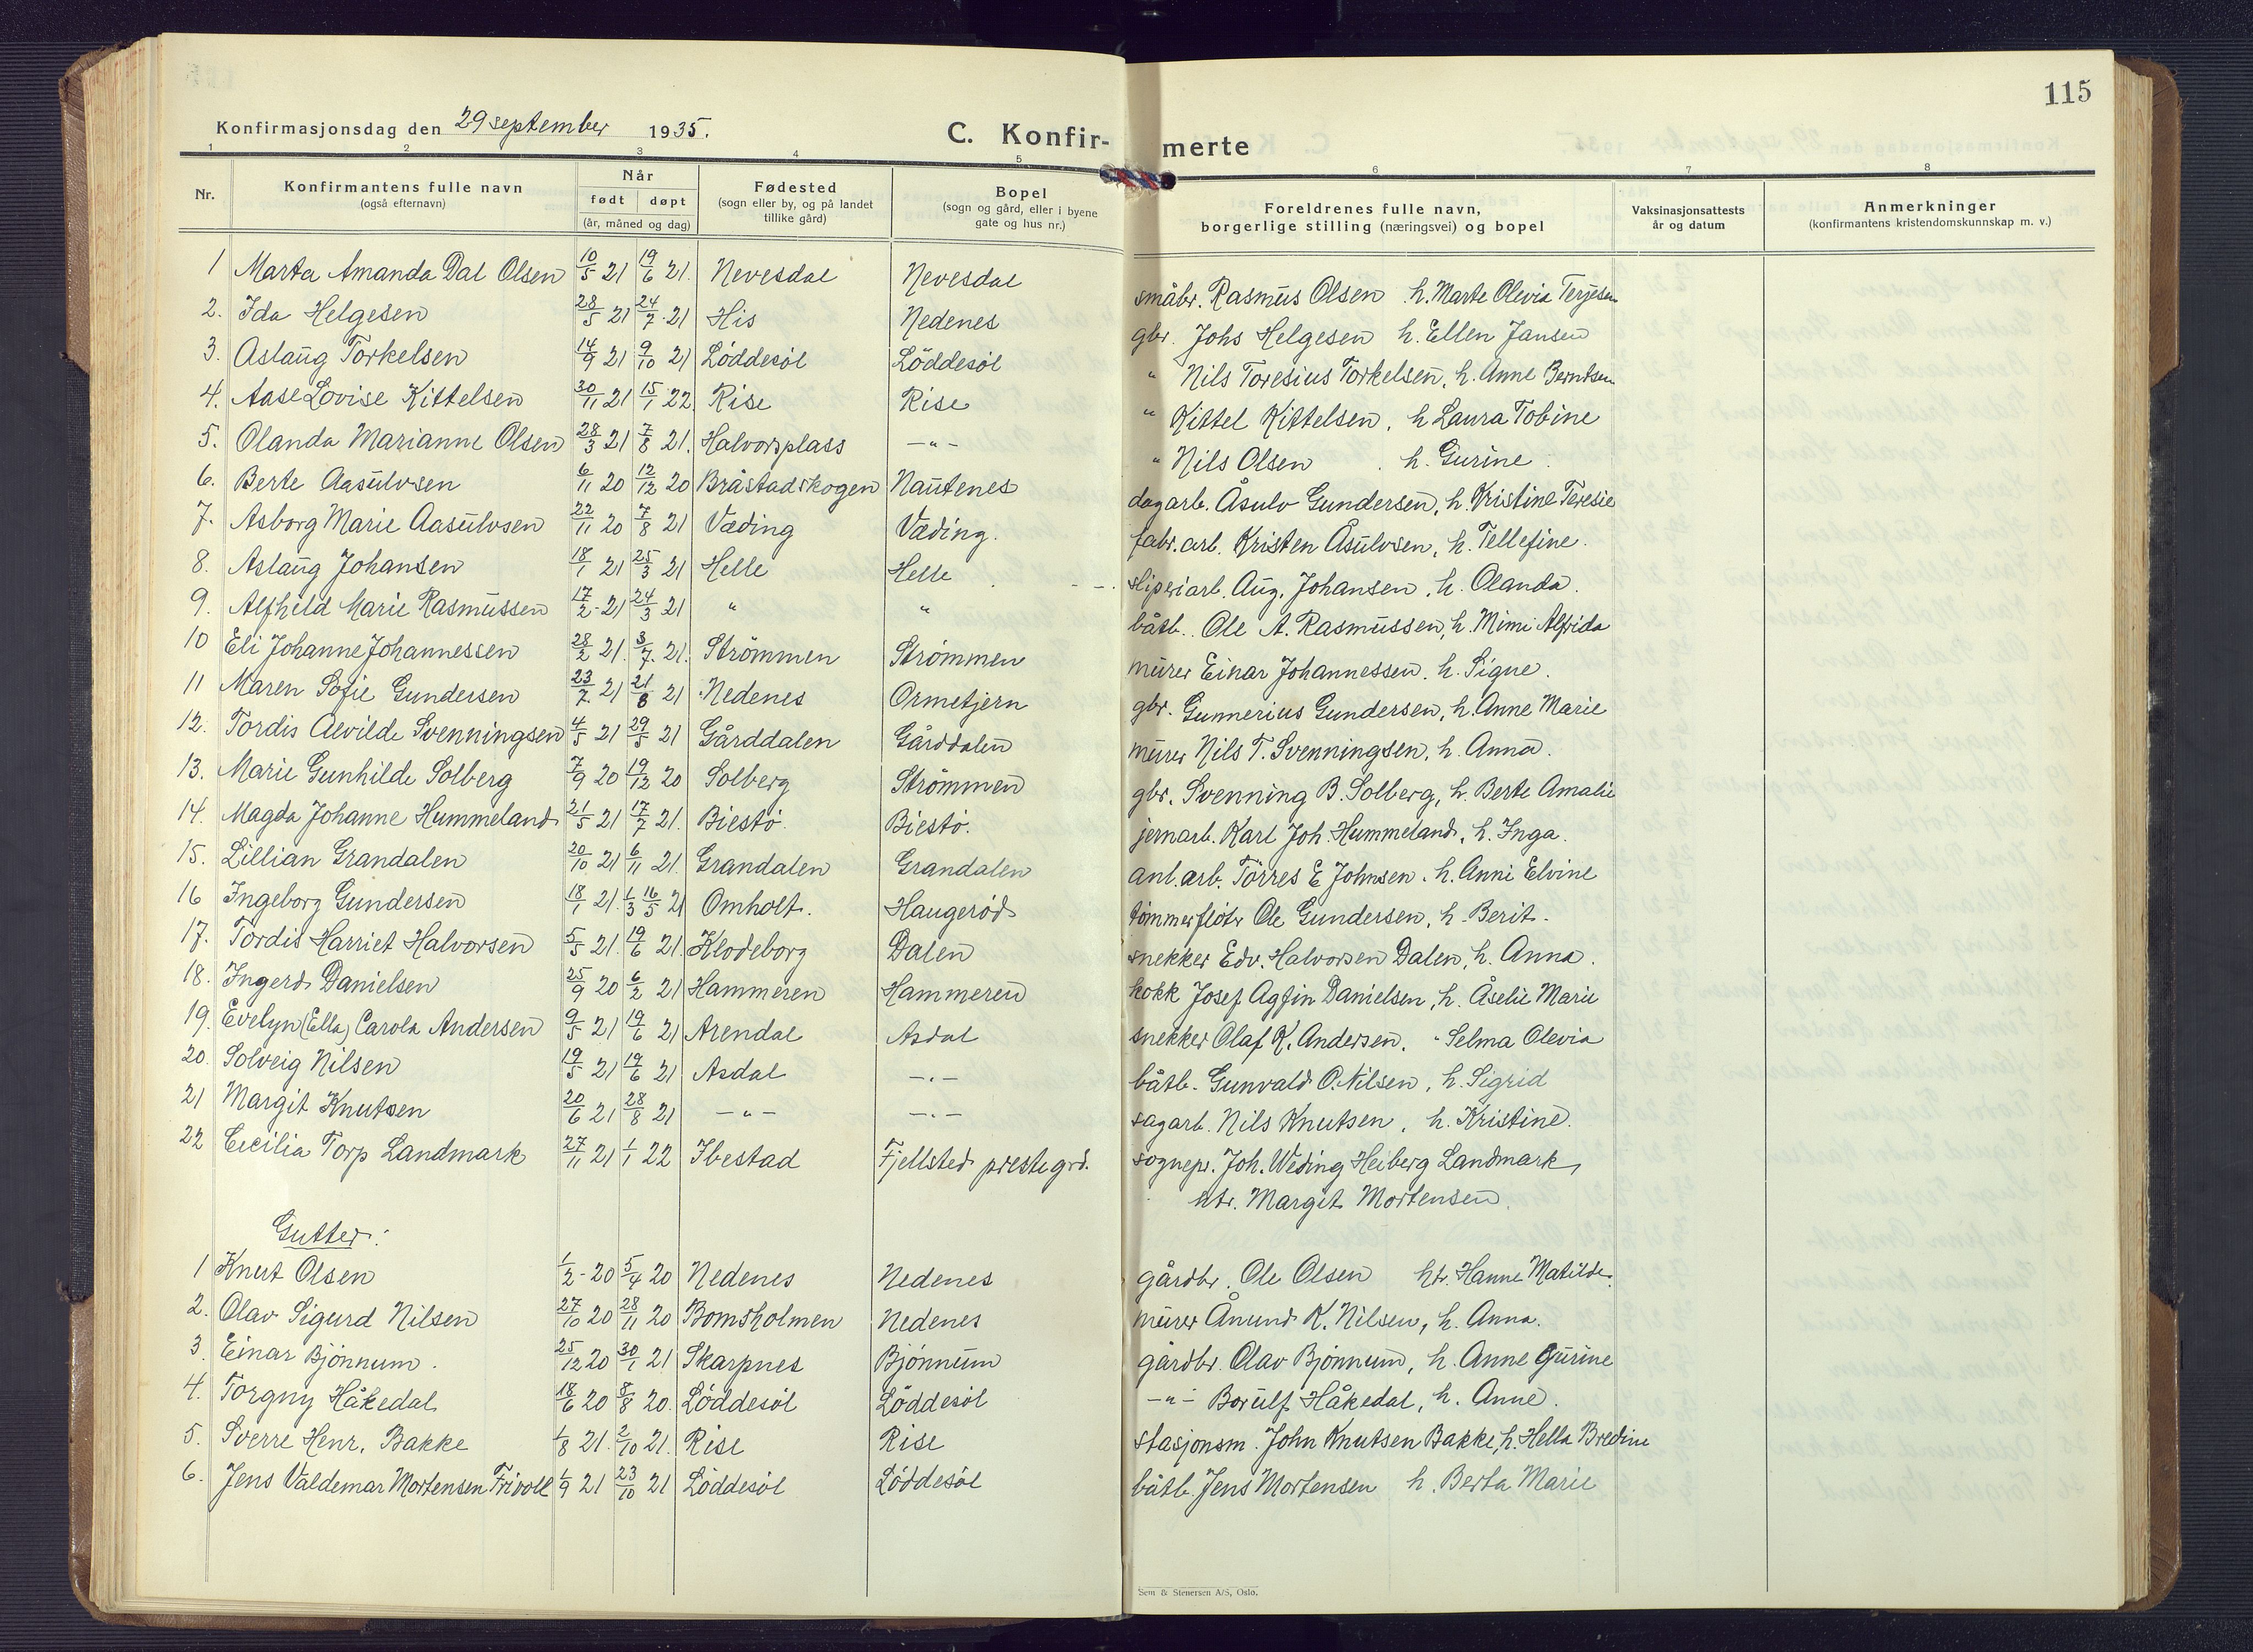 115
Konfirmasjonsdag den 29 september 1935. C. Konfir- merte
1 2 3 4 5 6 7 8
Nr. Konfirmantens fulle navn (også efternavn) Når født døpt (år, måned og dag) Fødested (sogn eller by, og på landet tillike gård) Bopel (sogn og gård, eller i byene gate og hus nr.) Foreldrenes fulle navn, borgerlige stilling (næringsvei) og bopel Vaksinasjonsattests år og datum Anmerkninger (konfirmantens kristendomskunnskap m. v.)
1 Marta Amanda Dal Olsen 10/5 21 19/6 21. Nevesdal Nevesdal småbr. Rasmus Olsen h. Marte Olevia Terjesen
2. Ida Helgesen 28/5 21 24/7 21 His Nedenes gbr. Johs Helgesen h. Ellen Jansen
3. Aslaug Torkelsen 14/9 21 9/10 21 Løddesøl Løddesøl " Nils Toresius Torkelsen, h. Anne Berntsen
4. Aase Lovise Kittelsen 30/11 21 15/1 22. Rise Rise " Kittel Kittelsen, h Laura Tobine
5. Olanda Marianne Olsen 28/3 21 7/8 21. Halvorsplass -"- " Nils Olsen h. Gurine
6. Berte Aasulvsen 6/11 20 12/12 20 Bråstadskogen Nautenes dagarb. Åsulv Gundersen, h. Kristine Teresie
7. Asborg Marie Aasulvsen 22/11 20 7/8 21 Væding Væding. fabr. arb. Kristen Åsulvsen, h. Tellefine.
8. Aslaug Johansen 18/1 21 25/3 21 Helle Helle sliperiarb. Aug. Johansen, h. Olanda.
9. Alfhild Marie Rasmussen 17/2 21 24/3 21 " " båtb. Ole A. Rasmussen, h. Mimi Alfrida
10 Eli Johanne Johannessen 28/2 21. 3/7 21. Strømmen Strømmen murer Einar Johannessen. h. Signe.
11 Maren Sofie Gundersen 23/7 21 21/8 21 Nedenes Ormetjern gbr. Gunnerius Gundersen, h. Anne Marie
12. Tordis Alvilde Svenningsen 4/5 21 29/5 21 Gårddalen Gårddalen murer Nils T. Svenningsen, h. Anna.
13. Marie Gunhilde Solberg 7/9 20 19/12 20 Solberg Strømmen gbr. Svenning B. Solberg, h. Berte Amalie
14. Magda Johanne Hummeland 21/5 21 17/7 21. Biestø. Biestø. jernarb. Karl Joh. Hummeland, h. Inga.
15. Lillian Grandalen 20/10 21 6/11 21. Grandalen Grandalen anl. arb. Tørres E Johnsen. h. Anni Elvine
16 Ingeborg Gundersen 18/1 21. 1/3 16/5 21 Omholt. Haugerød tømmerfløter Ole Gundersen, h. Berit.
17. Tordis Harriet Halvorsen 5/5 21. 19/6 21. Klodeborg Dalen snekker Edv. Halvorsen Dalen, h. Anna.
18. Ingerd Danielsen 25/9 20 6/2 21 Hammeren Hammeren kokk Josef Agfin Danielsen, h. Åselie Marie
19. Evelyn (Ella) Carola Andersen 9/5 21 19/6 21 Arendal Asdal snekker Olaf K. Andersen. " Selma Olevia
20. Solveig Nilsen 19/5 21 19/6 21 Asdal -"- båtb. Gunvald O. Nilsen, h. Sigrid
21 Margit Knutsen 20/6 21 28/8 21 -"- -"- sagarb. Nils Knutsen, h. Kristine.
22 Cecilia Torp Landmark 27/11 21 1/1 22 Ibestad Fjellsted prestegrd. sognepr. Joh. Weding Heiberg Landmark,
htr. Margit Mortensen
Gutter:
1 Knut Olsen 1/2 20 5/4 20 Nedenes Nedenes gårdbr. Ole Olsen htr. Hanne Matilde.
2. Olav Sigurd Nilsen 27/10 20 28/11 20 Bomsholmen Nedenes murer Ånund K. Nilsen, h. Anna.
3. Einar Bjønnum. 25/12 20 30/1 21 Skarpnes Bjønnum gårdbr. Olav Bjønnum, h. Anne Gurine
4. Torgny Håkedal 18/6 20 8/8 20. Løddesøl Løddesøl -"- Borulf Håkedal, h. Anne.
5. Sverre Henr. Bakke 1/8 21. 2/10 21. Rise Rise stasjonsm. John Knutsen Bakke, h. Hella Bredine
6. Jens Valdemar Mortensen Frivoll 1/9 21 23/10 21 Løddesøl Løddesøl båtb. Jens Mortensen h. Berta Marie
Sem & Stenersen A/S, Oslo.